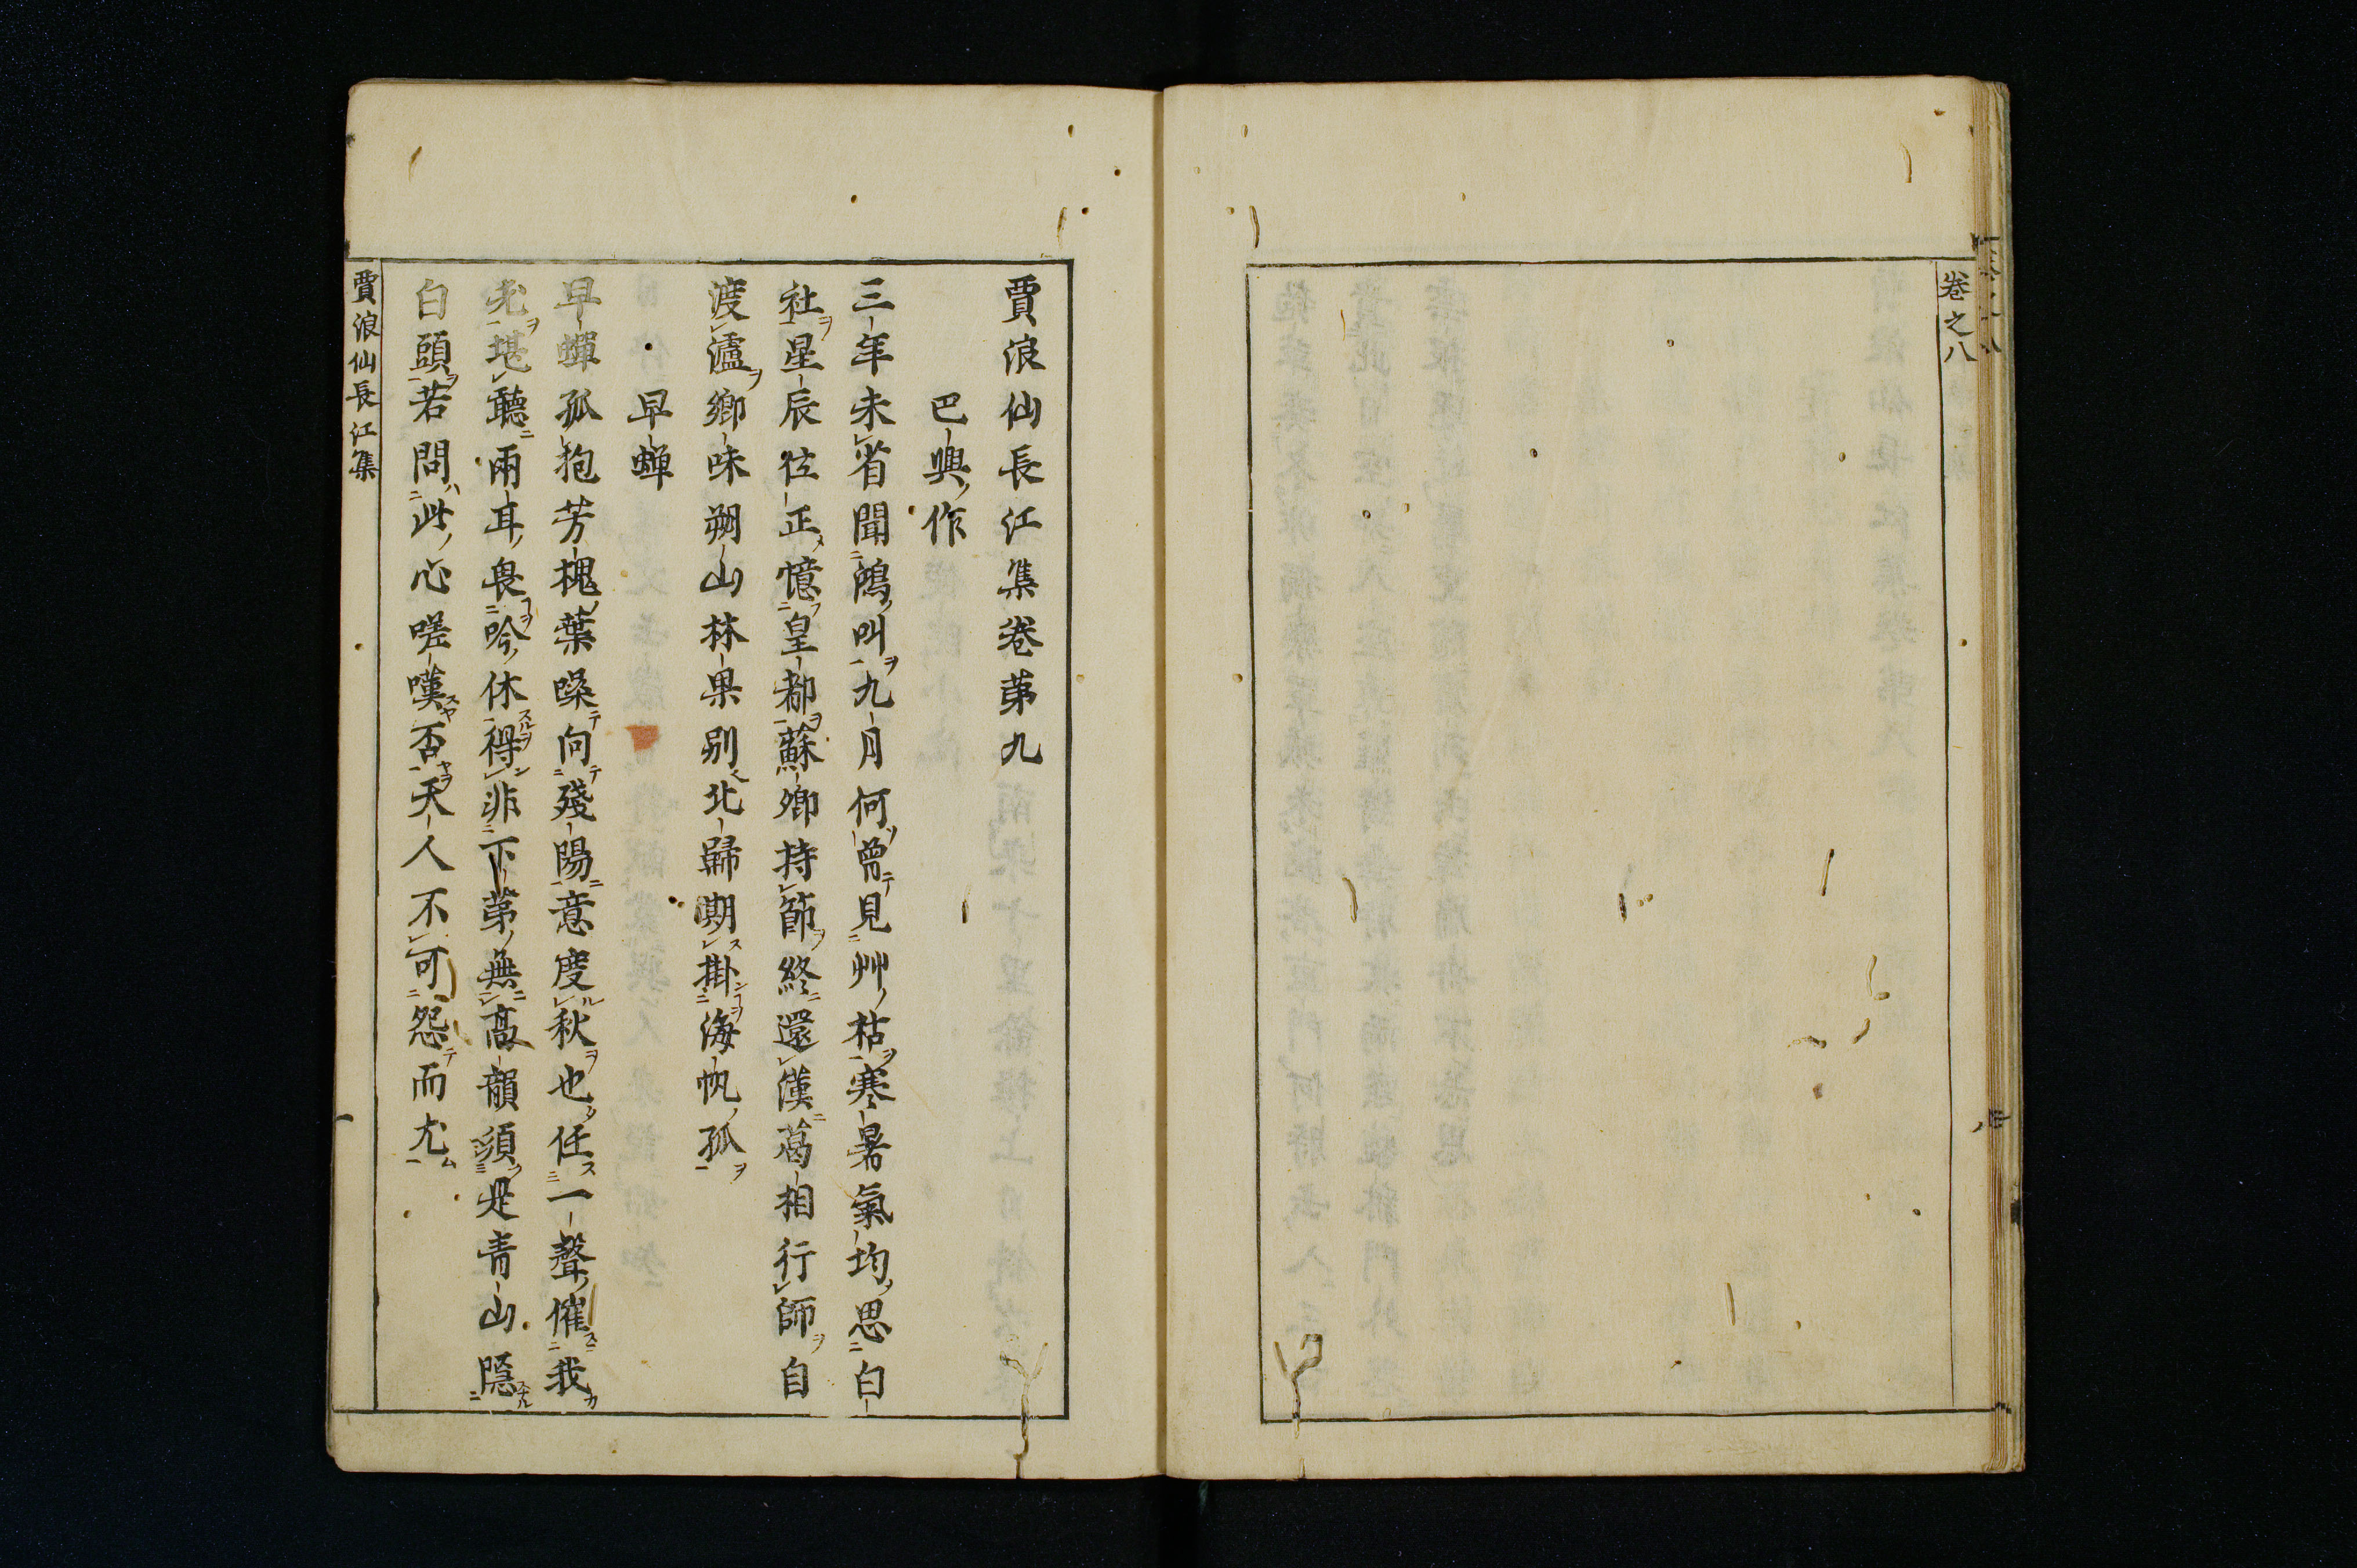 卷之八
賈浪仙長江集卷第九
巴興作
三年未省聞鴻叫九月何曾見艸枯寒暑氣均思白
社星辰位正憶皇都蘇卿持節終還漢葛相行師自
渡瀘鄉味朔山林果別北歸期掛海帆孤
早蟬
早蟬孤抱芳槐葉噪向殘陽意度秋也任一聲催我
老堪聽兩耳畏吟休得非下第無高韻須是青山隱
白頭若問此心嗟嘆否天人不可怨而尤
賈浪仙長江集